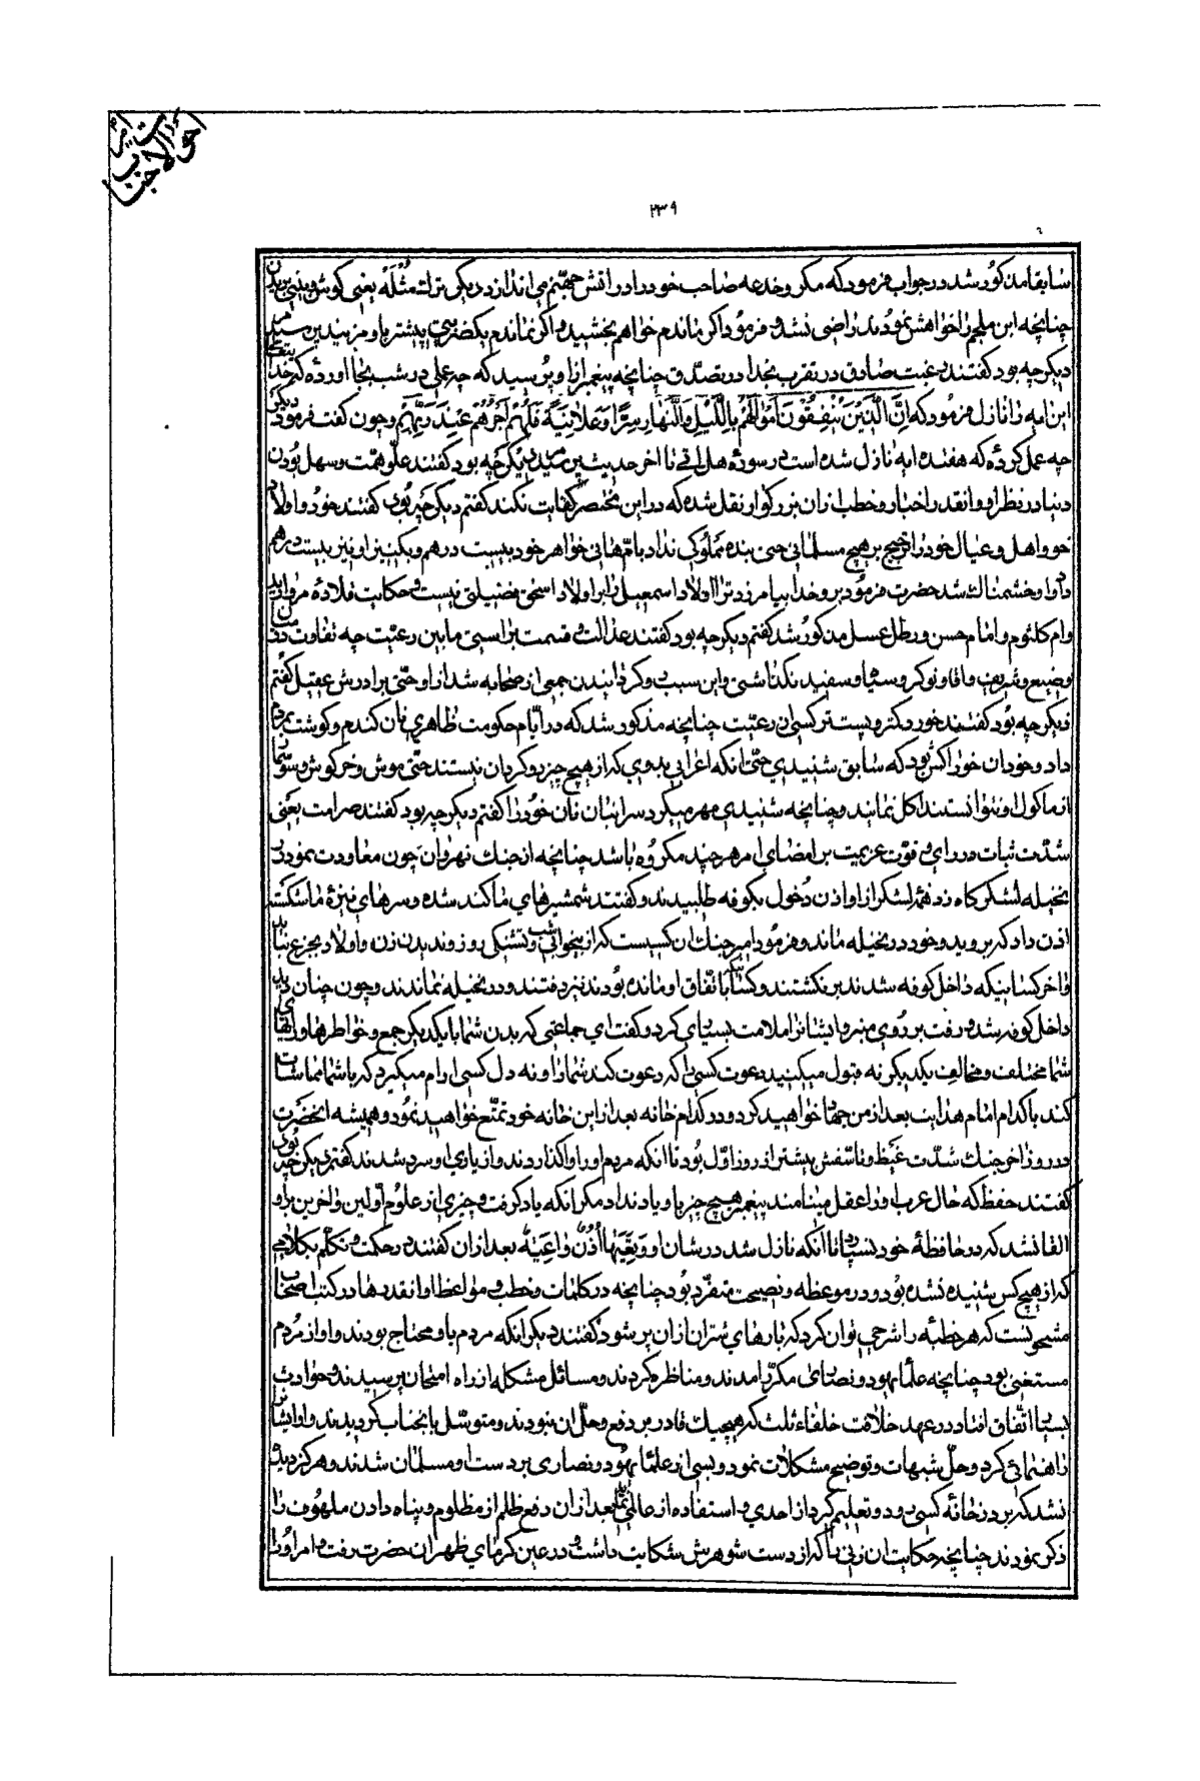 احوالات
جناب امیر
۲۳۹
سابقا مذکور شد در جواب فرمود که مکر و خدعه صاحب خود را در اتش جهنم می اندازد دیگر ترك مُثْلَه یعنی گوش و بینی بریدن
چنانچه ابن ملجم را خواهش نمودند راضی نشد و فرمود اگر ماندم خواهم بخشید و اگر نماندم یکضربت بیشتر باو مزنید
دیگر چه بود گفتند رغبت صادق در تقرب بخدا در تصدق چنانچه پیغمبر از او پرسید که چه عملی در شب بجا اورده که خدا
این ایه را نازل فرمود که اِنَّ الَّذِینَ یُنْفِقُونَ اَمْوالَهُمْ بِاللَّیْلِ وَالنَّهارِ سِرًّا وَعَلانِیَةً فَلَهُمْ اَجْرُهُمْ عِنْدَ رَبِّهِمْ و چون گفت فرمود دیگر
چه عمل کردهٔ که هفده ایه نازل شده است در سورهٔ هل اتی تا اخر حدیث دیگر چه بود گفتند علو همت و سهل بودن
دنیا در نظر او و انقدر اخبار و خطب از ان بزرگوار نقل شده که در این مختصر کفایت نکند گفتم دیگر چه بود گفتند خود و اولاد
خود و اهل و عیال خود را ترجیح بر هیچ مسلمانی حتی بنده مملوکی نداد بام هانی خواهر خود بیست درهم و بکنیز او نیز بیست درهم
داد او خشمناك شد حضرت فرمود برو خدا بیامرزد ترا اولاد اسمعیل را بر اولاد اسحق فضیلتی نیست و حکایت قلادهٔ مروارید
و ام کلثوم و امام حسن و رطل عسل مذکور شد گفتم دیگر چه بود گفتند عدالت و قسمت براستی مابین رعیت چه تفاوت در
وضیع و شریف و اقا و نوکر و سیاه و سفید نگذاشتی و این سبب و گردانیدن جمعی از صحابه شد از او حتی برادرش عقیل گفتم
دیگر چه بود گفتند خوردکتر و پست تر کسی از رعیت چنانچه مذکور شد که در ایام حکومت ظاهری نان گندم و گوشت بمردم
داد و خود ان خوراکش بود که سابق شنیدی حتی انکه اعرابی بدوی که از هیچ چیز روگردان نیستند حتی موش و خرگوش و سوسمار
از ماکول او نتوانستند اکل نمایند و چنانچه شنیدی مهر میکرد سر انبان نان خود را گفتم دیگر چه بود گفتند صرامت یعنی
شدت ثبات در رای و قوت عزیمت بر امضای امر هرچند مکروه باشد چنانچه از جنك نهروان چون معاودت نمود در
نخیله لشکرگاه زد همه لشکر از او اذن دخول بکوفه طلبیدند و گفتند شمشیرهای ما کند شده و سرهای نیزهٔ ما شکسته
اذن داد که بروید و خود در نخیله ماند و فرمود امیر جنك ان کسیست که از بیخوابی شب و تشنگی روز و ندیدن زن و اولاد بجزع نیاید
و اخر کسانیکه داخل کوفه شدند برنگشتند و کسانیکه باتفاق او مانده بودند نیز رفتند و در نخیله نماندند و چون چنان دید
داخل کوفه شد و رفت بر روی منبر و ایشانرا ملامت بسیاری کرد و گفت ای جماعتی که بدن شما با یکدیگر جمع و خواطرها و رایهای
شما مختلف و مخالف یکدیگر نه قبول میکنید دعوت کسی را که دعوت کند شما را و نه دل کسی ارام میگیرد که با شما مماشات
کند با کدام امام هدایت بعد از من جهاد خواهید کرد و در کدام خانه بعد از این خانه خود تمتع خواهید نمود و همیشه انحضرت
در روز اخر جنك شدت غیظ و تاسفش بیشتر از روز اول بود تا انکه مردم او را واگذاردند و از یاری او سرد شدند گفتم دیگر چه بود
گفتند حفظ که حال عرب او را عقل مینامند پیغمبر هیچ چیز باو یاد نداد مگر انکه یاد گرفت و چیزی از علوم اولین و اخرین بر او
القا نشد که در حافظهٔ خود نسپارد تا انکه نازل شد در شان او وَتَعِیَها اُذُنٌ واعِیَةٌ بعد از ان گفتند در حکمت و تکلم بکلامی
که از هیچ کس شنیده نشده بود و در موعظه و نصیحت متفرد بود چنانچه در کلمات و خطب و مواعظ او انقدرها در کتب اصحاب
مشحونست که هر خطبهٔ را شرحی توان کرد که بارهای شتران از ان پر شود گفتند دیگر انکه مردم باو محتاج بودند و او از مردم
مستغنی بود چنانچه علما یهود و نصارای مکرر امدند و مناظره کردند و مسائل مشکله از راه امتحان پرسیدند و حوادث
بسیار اتفاق افتاد در عهد خلافت خلفاء ثلث که هیچیك قادر بر دفع و حل ان نبودند و متوسل بانجناب گردیدند و او ایشانرا
راهنمائی کرد و حل شبهات و توضیح مشکلات نمود و بسی از علما یهود و نصاری بر دست او مسلمان شدند و هرگز دیده
نشد که بر در خانه کسی رود و تعلیم گیرد از احدی و استفاده از عالمی نماید بعد از ان دفع ظلم از مظلوم و پناه دادن ملهوف را
ذکر نمودند چنانچه حکایت ان زنی را که از دست شوهرش شکایت داشت و در عین گرمای ظهر ان حضرت رفت و امر او را